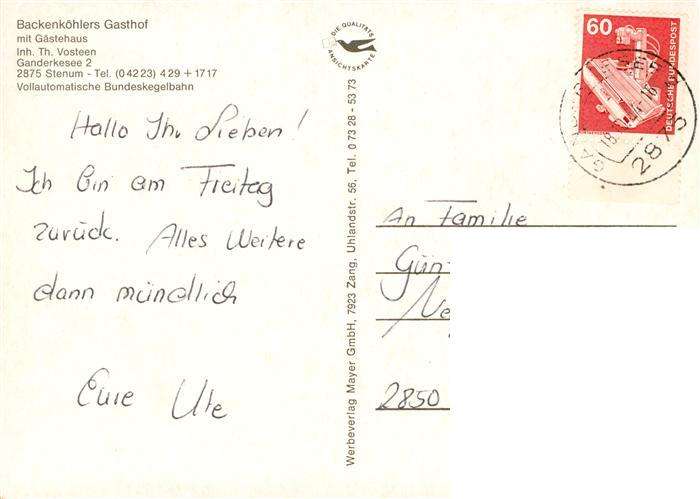 Backenköhlers Gasthof
mit Gästehaus
Inh. Th. Vosteen
Ganderkesee 2
2875 Stenum - Tel. (04223) 429 + 1717
Vollautomatische Bundeskegelbahn
Hallo Ihr Lieben!
Ich bin am Freitag
zurück. Alles Weitere
dann mündlich
Eure Ute
DIE QUALITÄTS
ANSICHTSKARTE
Werbeverlag Mayer GmbH, 7923 Zang, Uhlandstr. 56, Tel. 0 73 28 - 53 73
60
DEUTSCHE BUNDESPOST
2875
An Familie
Gün
Ne
2850